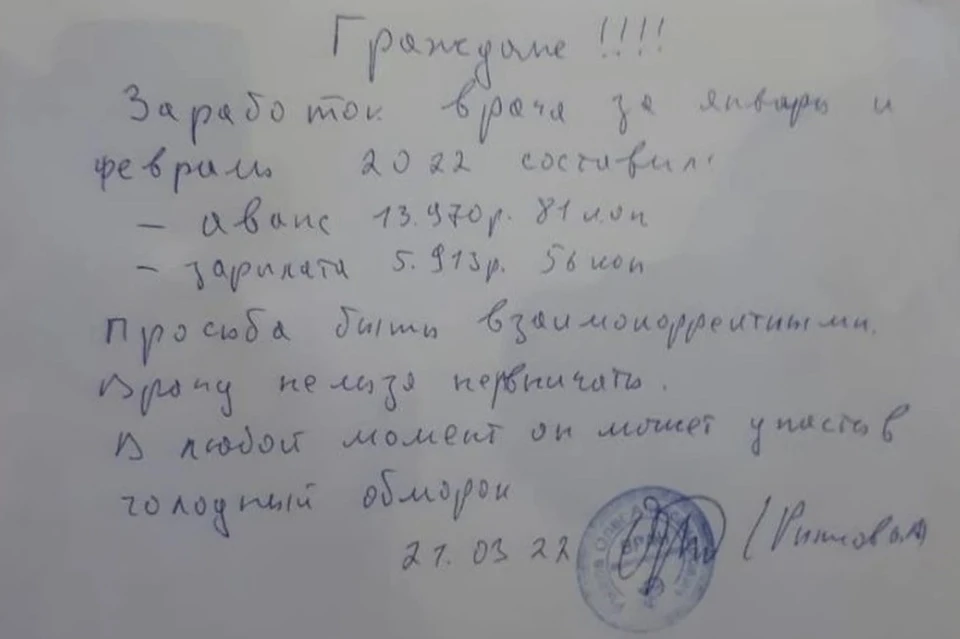 Граждане !!!!
Заработок врача за январь и
февраль 2022 составил:
- аванс 13.970р. 81 коп
- зарплата 5.913р. 56 коп
Просьба быть взаимокорректными.
Врачу нельзя нервничать.
В любой момент он может упасть в
голодный обморок
21.03 22
ВРАЧ